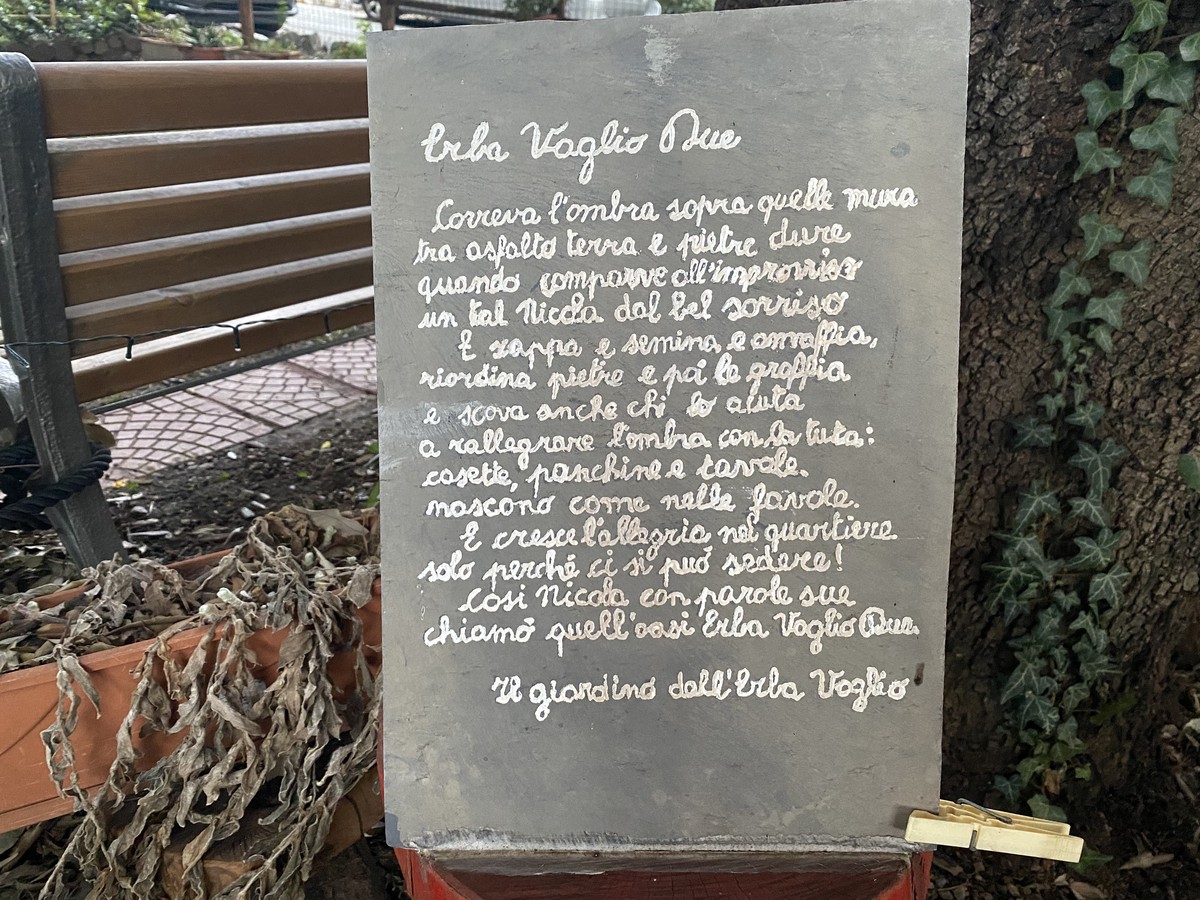 Erba Voglio Due
Correva l'ombra sopra quelle mura
tra asfalto terra e pietre dure
quando comparve all'improvviso
un tal Nicola dal bel sorriso
E zappa e semina e annaffia,
riordina pietre e poi le graffia
e scova anche chi lo aiuta
a rallegrare l'ombra con la tuta:
casette, panchine e tavole.
nascono come nelle favole.
E cresce l'allegria nel quartiere
solo perché ci si può sedere!
Così Nicola con parole sue
chiamò quell'oasi Erba Voglio Due.
Il giardino dell'Erba Voglio